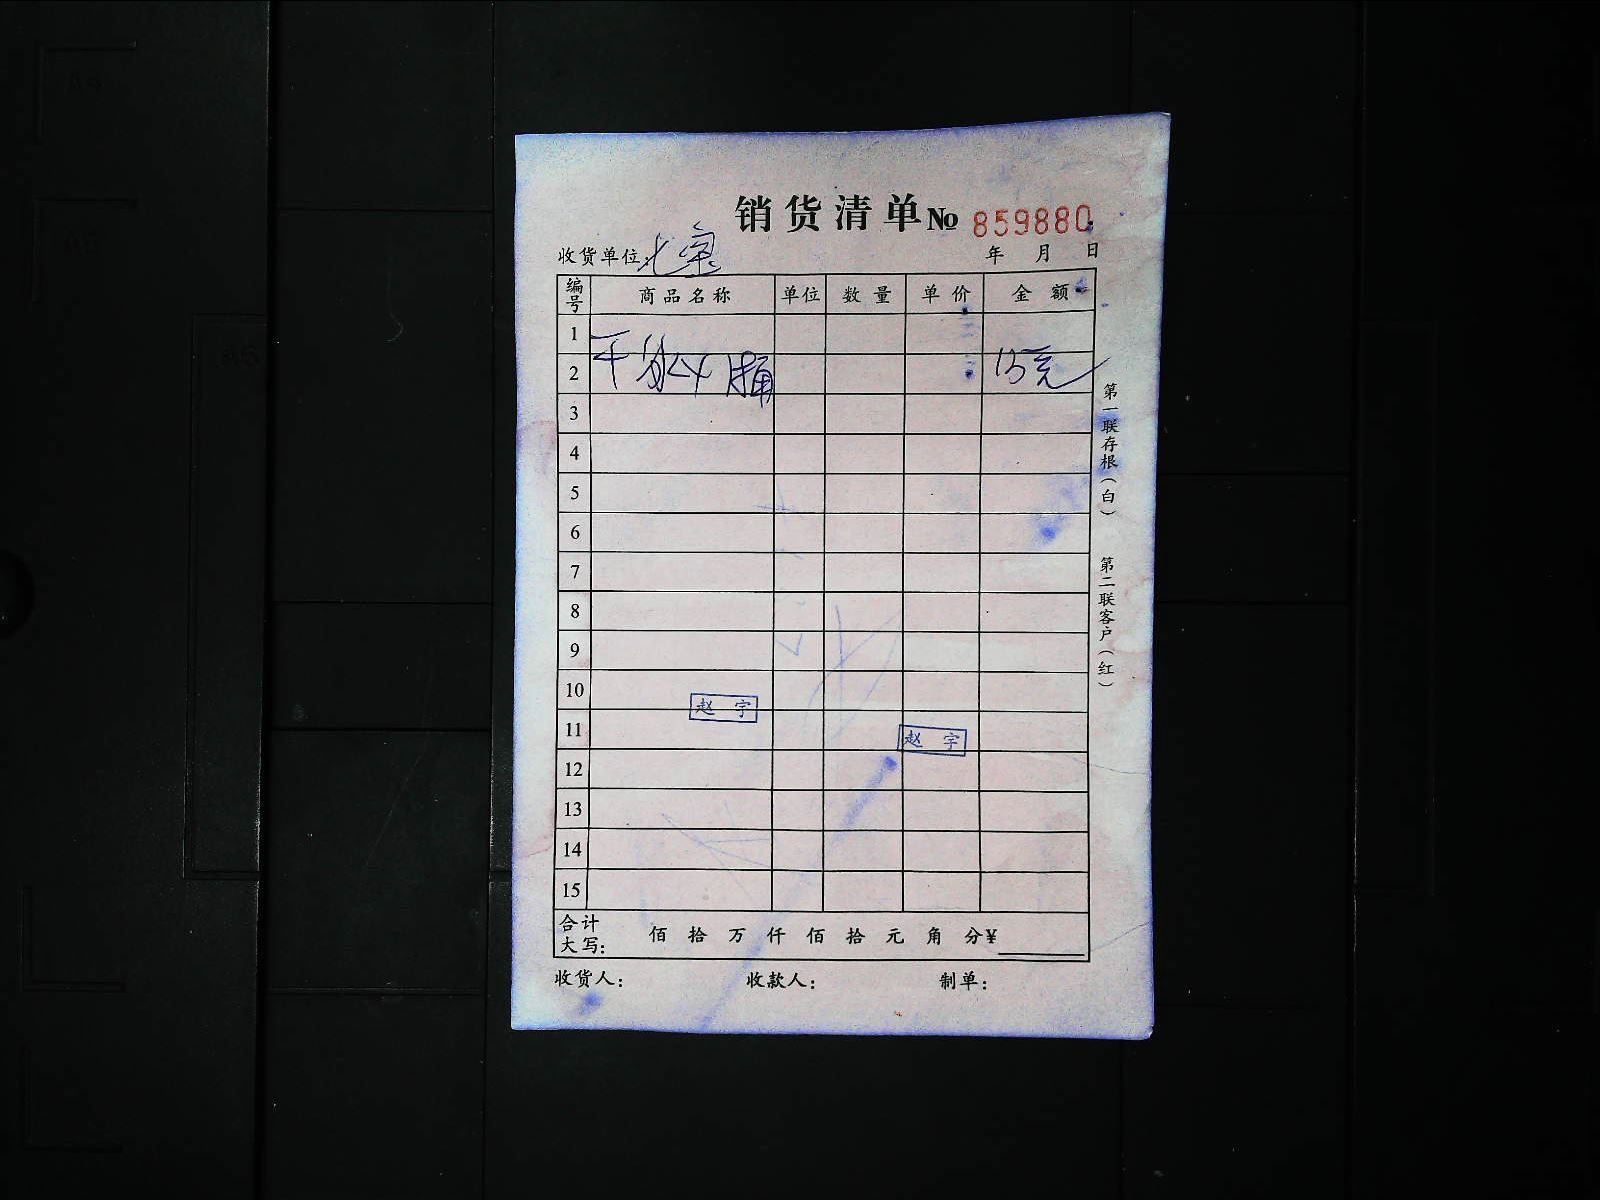 销货清单 № 859880
收货单位: 年 月 日
编号 商品名称 单位 数量 单价 金额
1
2 15元
3
4
5
6
7
8
9
10
赵 宇
11
赵 宇
12
13
14
15
合计大写: 佰 拾 万 仟 佰 拾 元 角 分 ¥
收货人: 收款人: 制单:
第一联存根(白) 第二联客户(红)